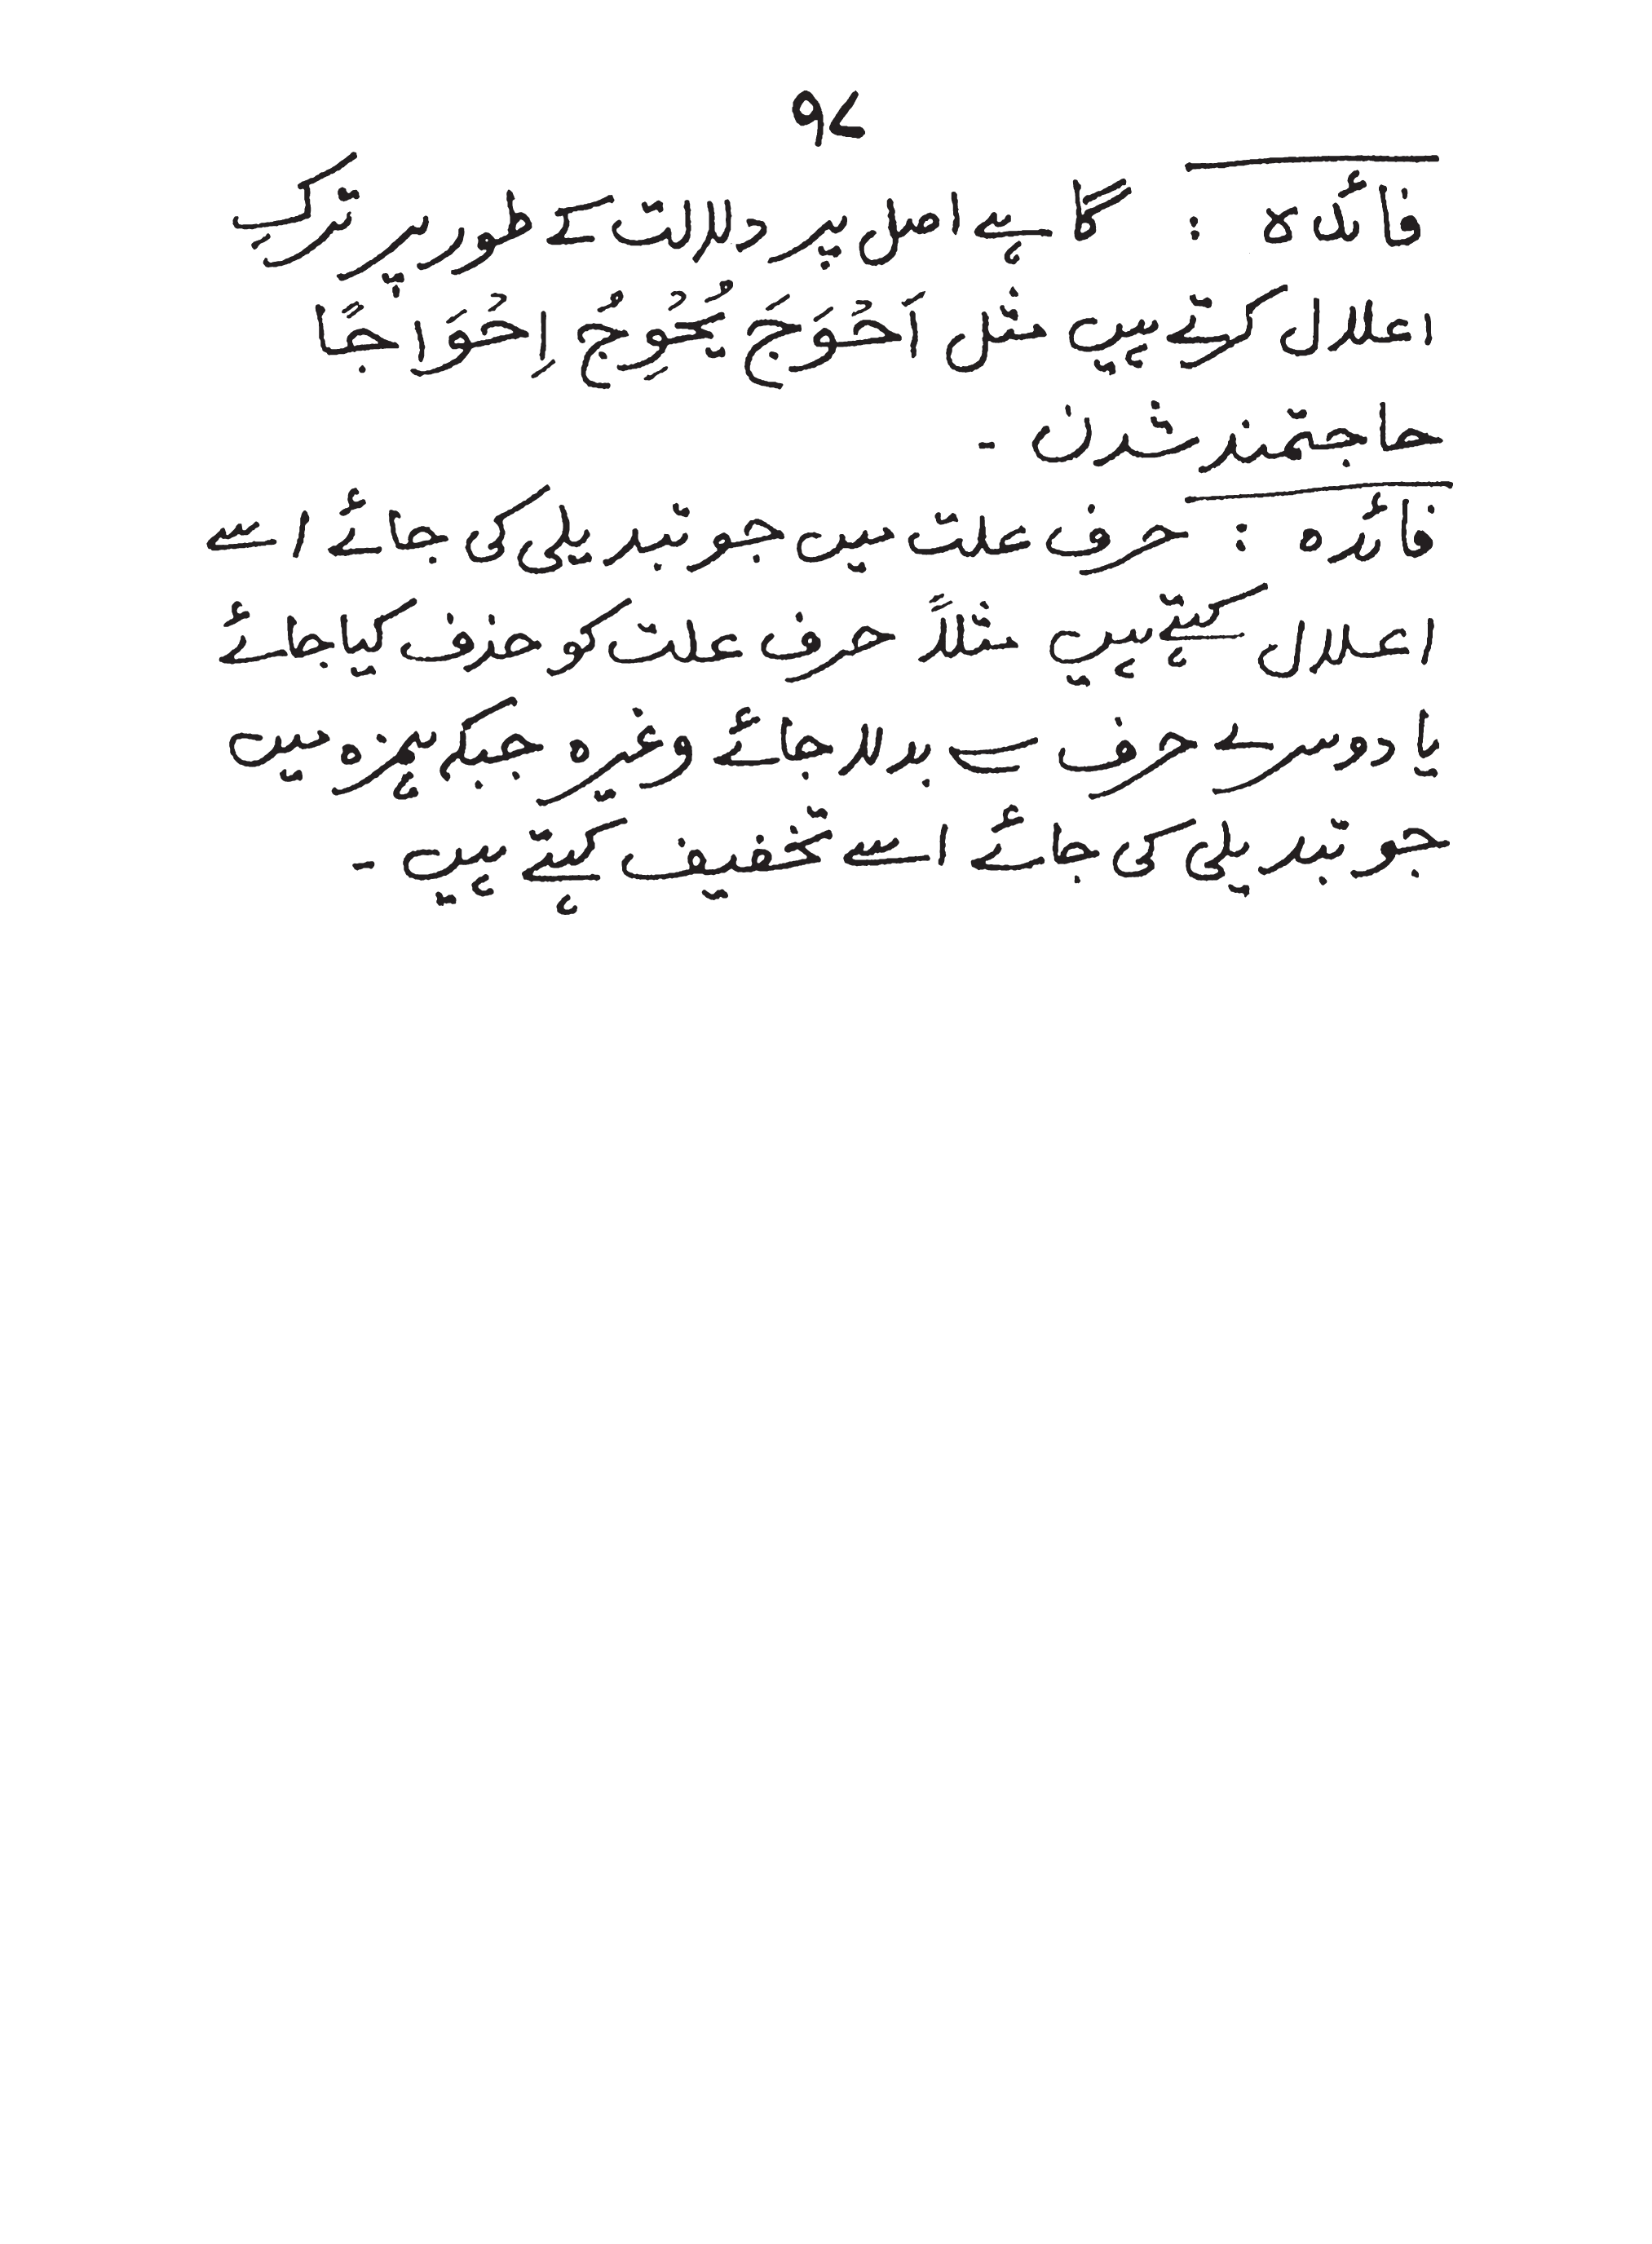 ۹۷
فائدہ : گاہے اصل پر دلالت کے طور پر ترکِ
اعلال کرتے ہیں مثل اَحْوَجَ یُحْوِجُ اِحْوَاجًا
حاجتمند شدن ۔
فائدہ : حرف علت میں جو تبدیلی کی جائے اسے
اعلال کہتے ہیں مثلاً حرف علت کو حذف کیا جائے
یا دوسرے حرف سے بدلا جائے وغیرہ جبکہ ہمزہ میں
جو تبدیلی کی جائے اسے تخفیف کہتے ہیں ۔